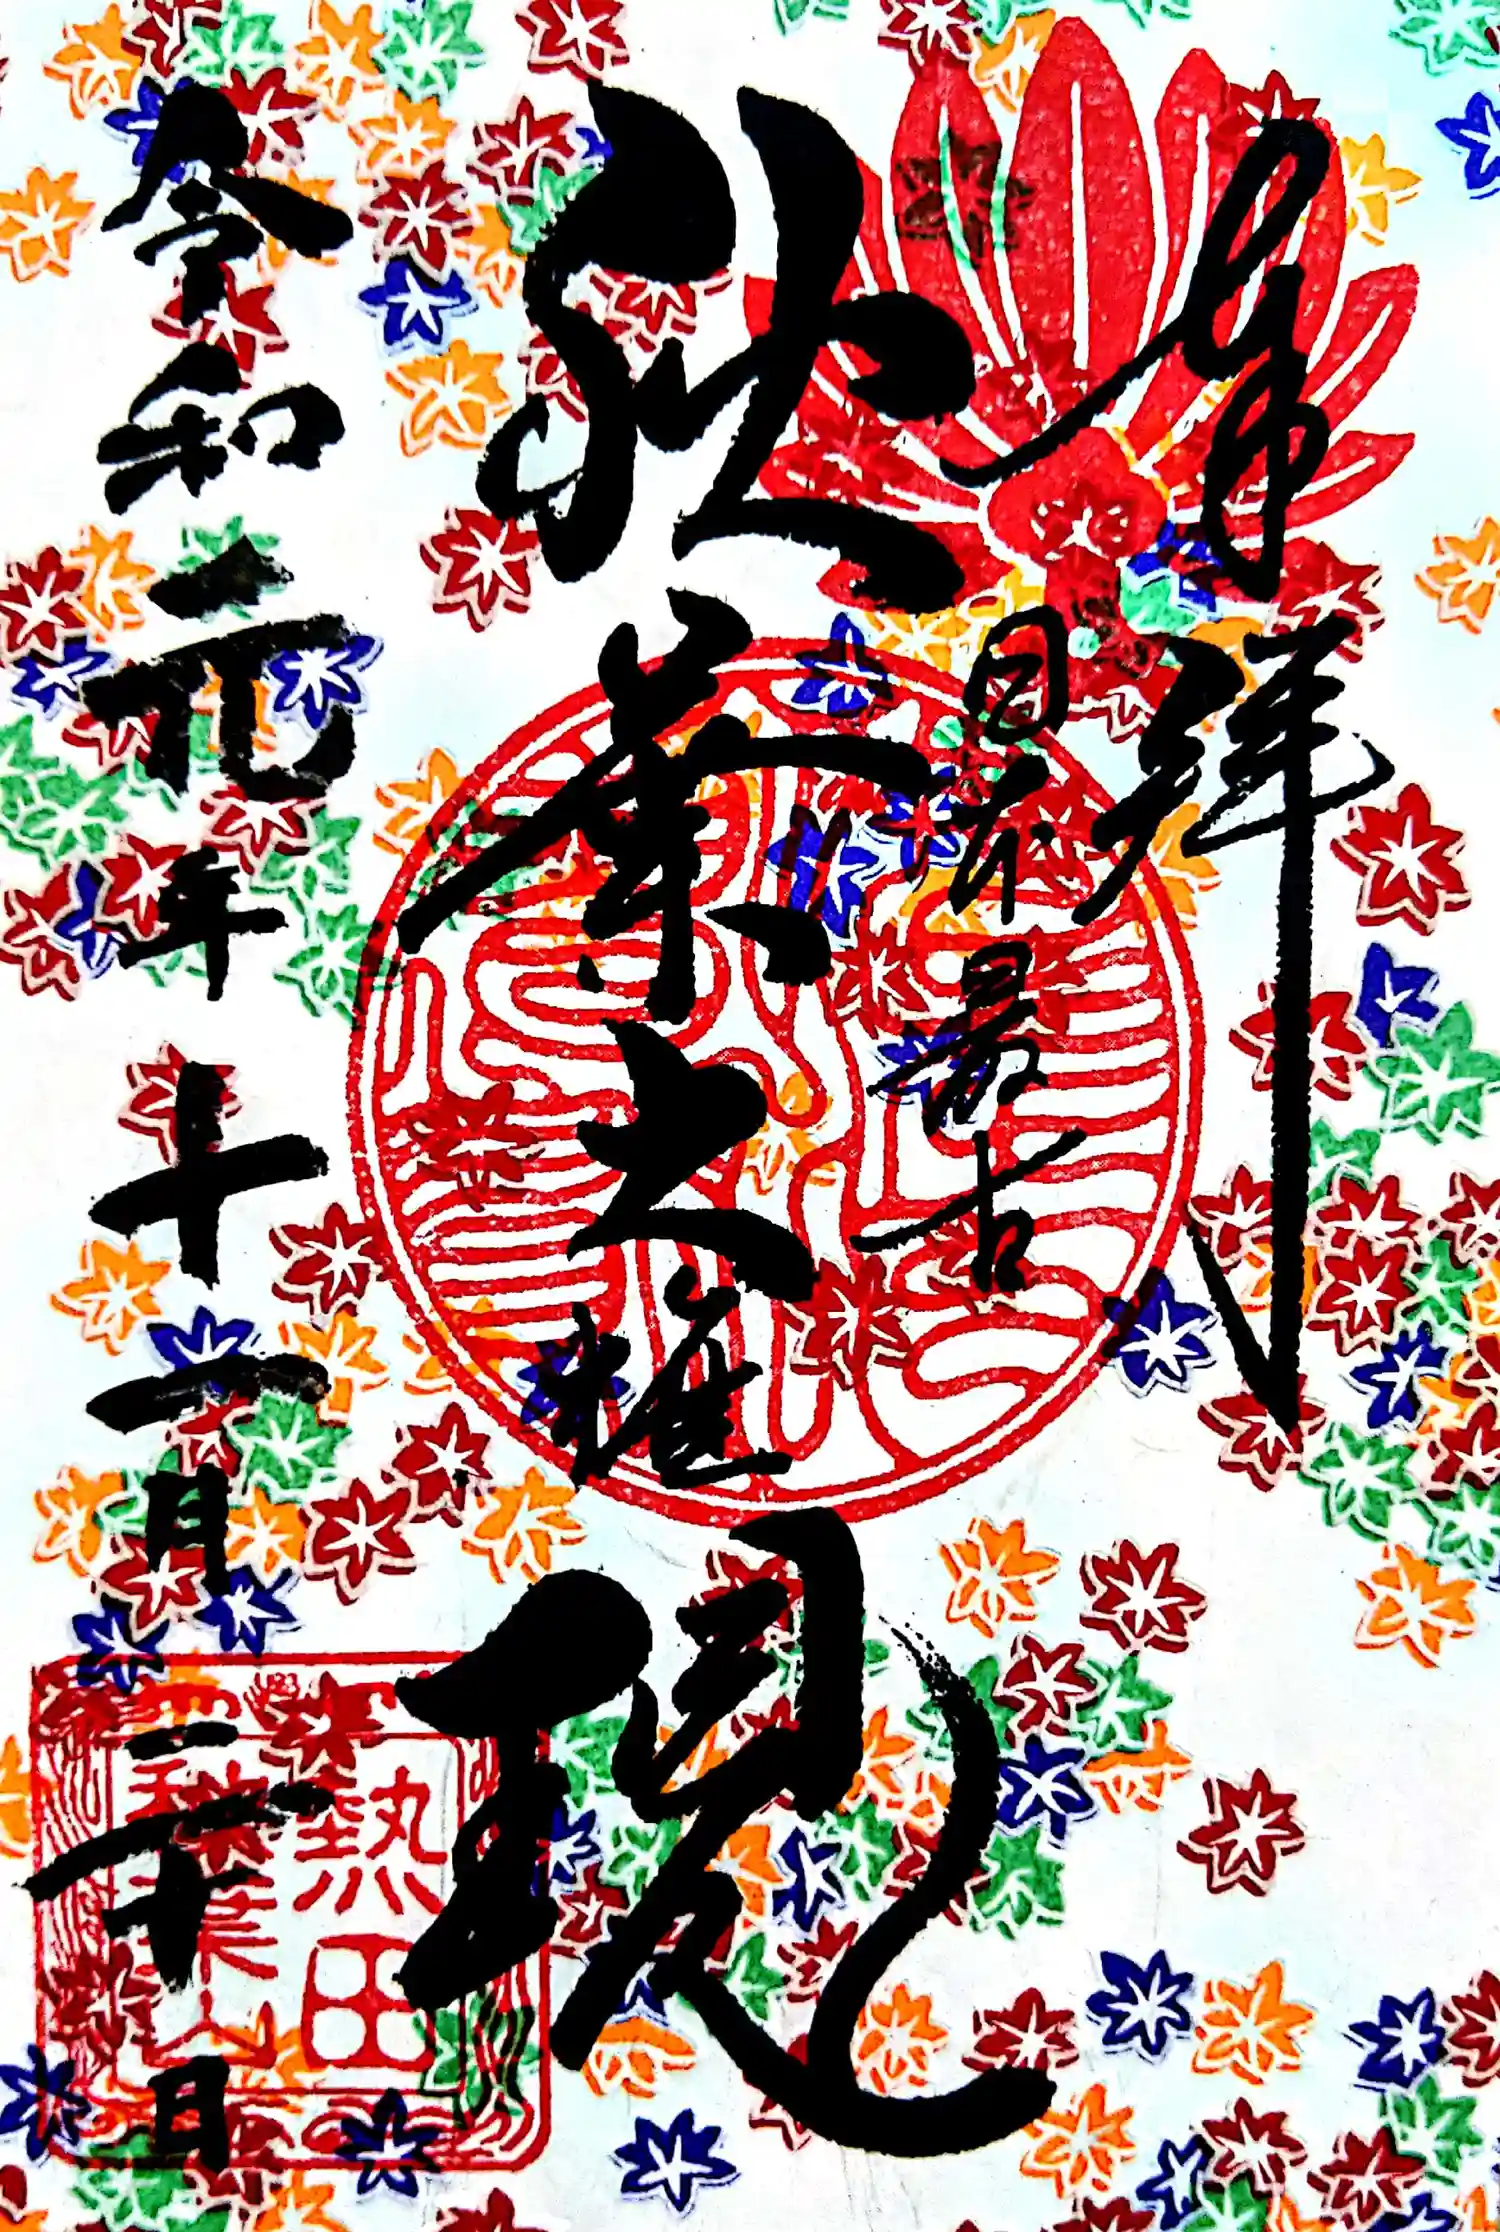 奉拝
日本最古
秋葉大権現
令和元年十一月二十日
熱田
秋葉山